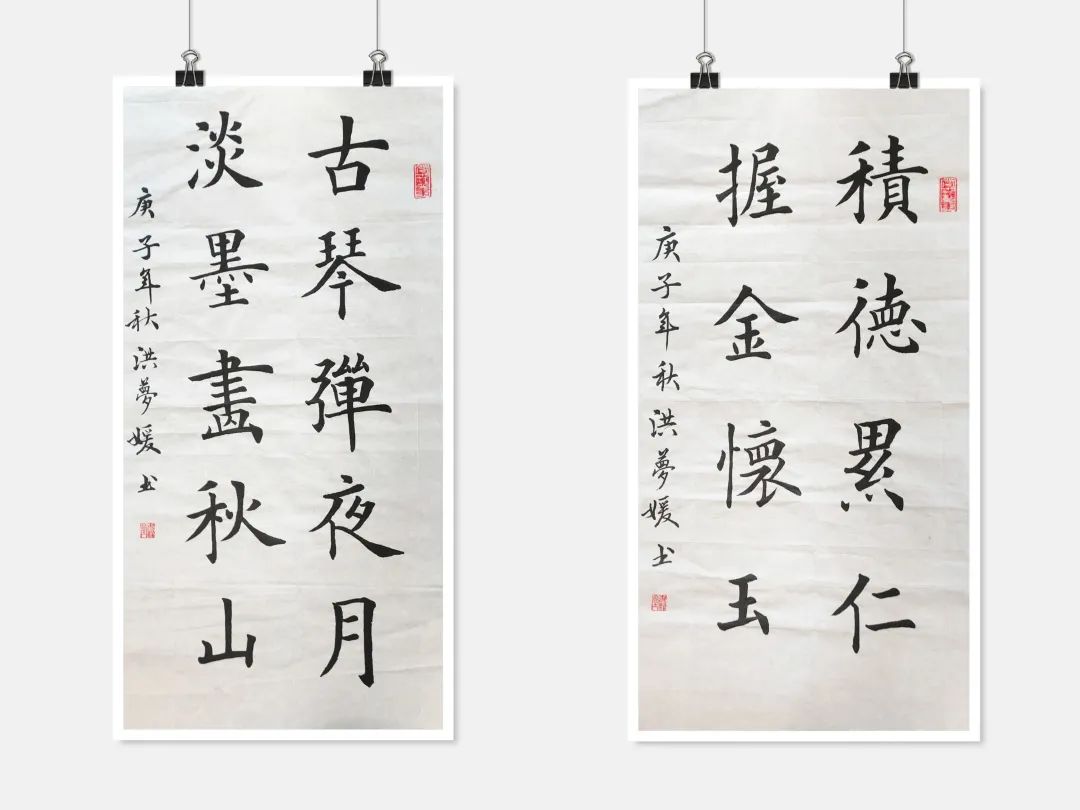 古琴彈夜月
淡墨畫秋山
庚子年秋洪夢媛书
積德累仁
握金懷玉
庚子年秋洪夢媛书